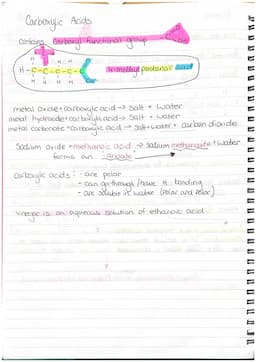 Carboxylic Acids
contains carboxyl functional group
H-C-C-C-C
4-methyl pentanoic acid
metal oxide + carboxylic acid → salt + water
metal hydroxide + carboxylic acid → salt + water
metal carbonate + carboxylic acid → salt + water + carbon dioxide
Sodium oxide + methanoic acid → sodium methanoate + water
forms an -anoate
carboxylic acids: - are polar
- can go through/have H bonding
- are soluble in water (polar and polar)
vinegar is an aqueous solution of ethanoic acid